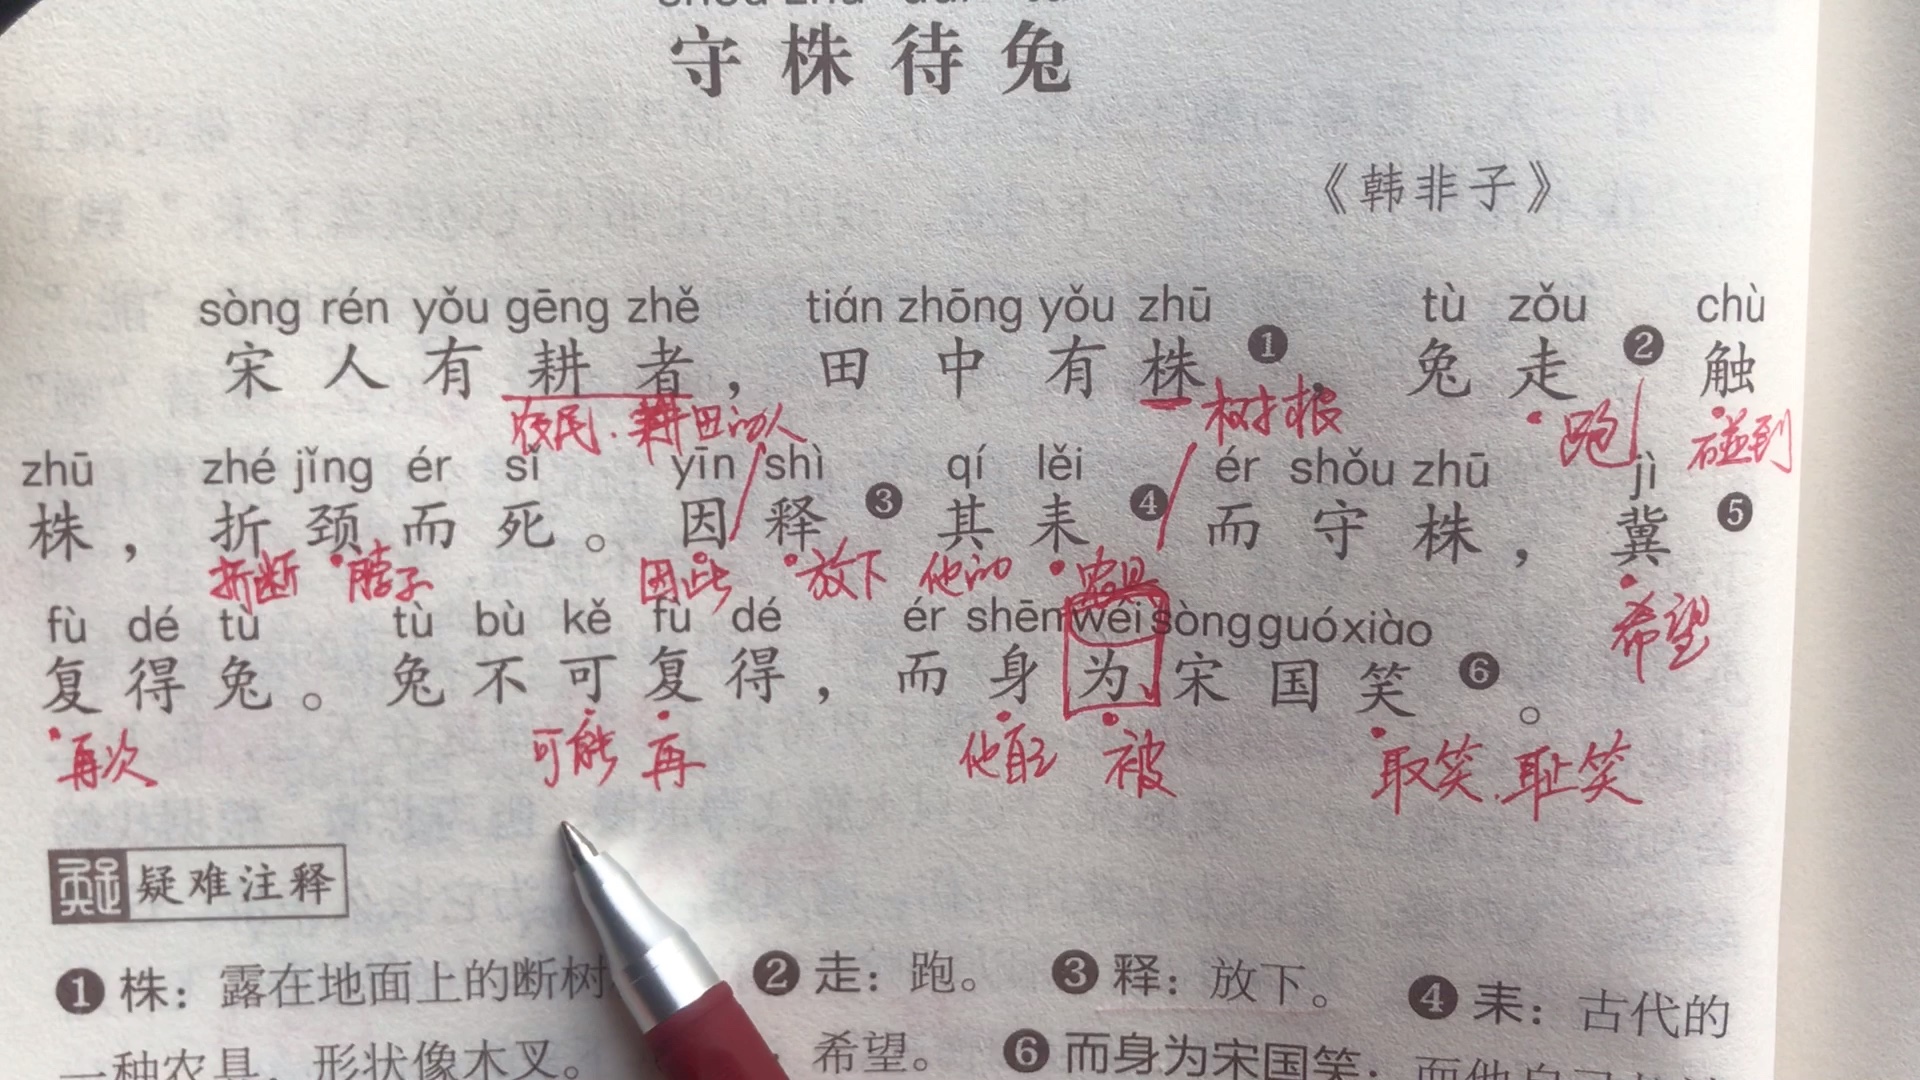 守株待兔
《韩非子》
sòng rén yǒu gēng zhě tián zhōng yǒu zhū tù zǒu chù
宋人有耕者，田中有株❶，兔走❷触
农民.耕田的人 树根 跑 碰到
zhū zhé jǐng ér sǐ yīn shì qí lěi ér shǒu zhū jì
株，折颈而死。因释❸其耒❹而守株，冀❺
折断 脖子 因此 放下 他的 农具 希望
fù dé tù tù bù kě fù dé ér shēn wéi sòng guó xiào
复得兔。兔不可复得，而身为宋国笑❻。
再次 可能 再 他自己 被 取笑.耻笑
疑难注释
❶株：露在地面上的断树 ❷走：跑。 ❸释：放下。 ❹耒：古代的
一种农具，形状像木叉。 ：希望。 ❻而身为宋国笑：而他自己